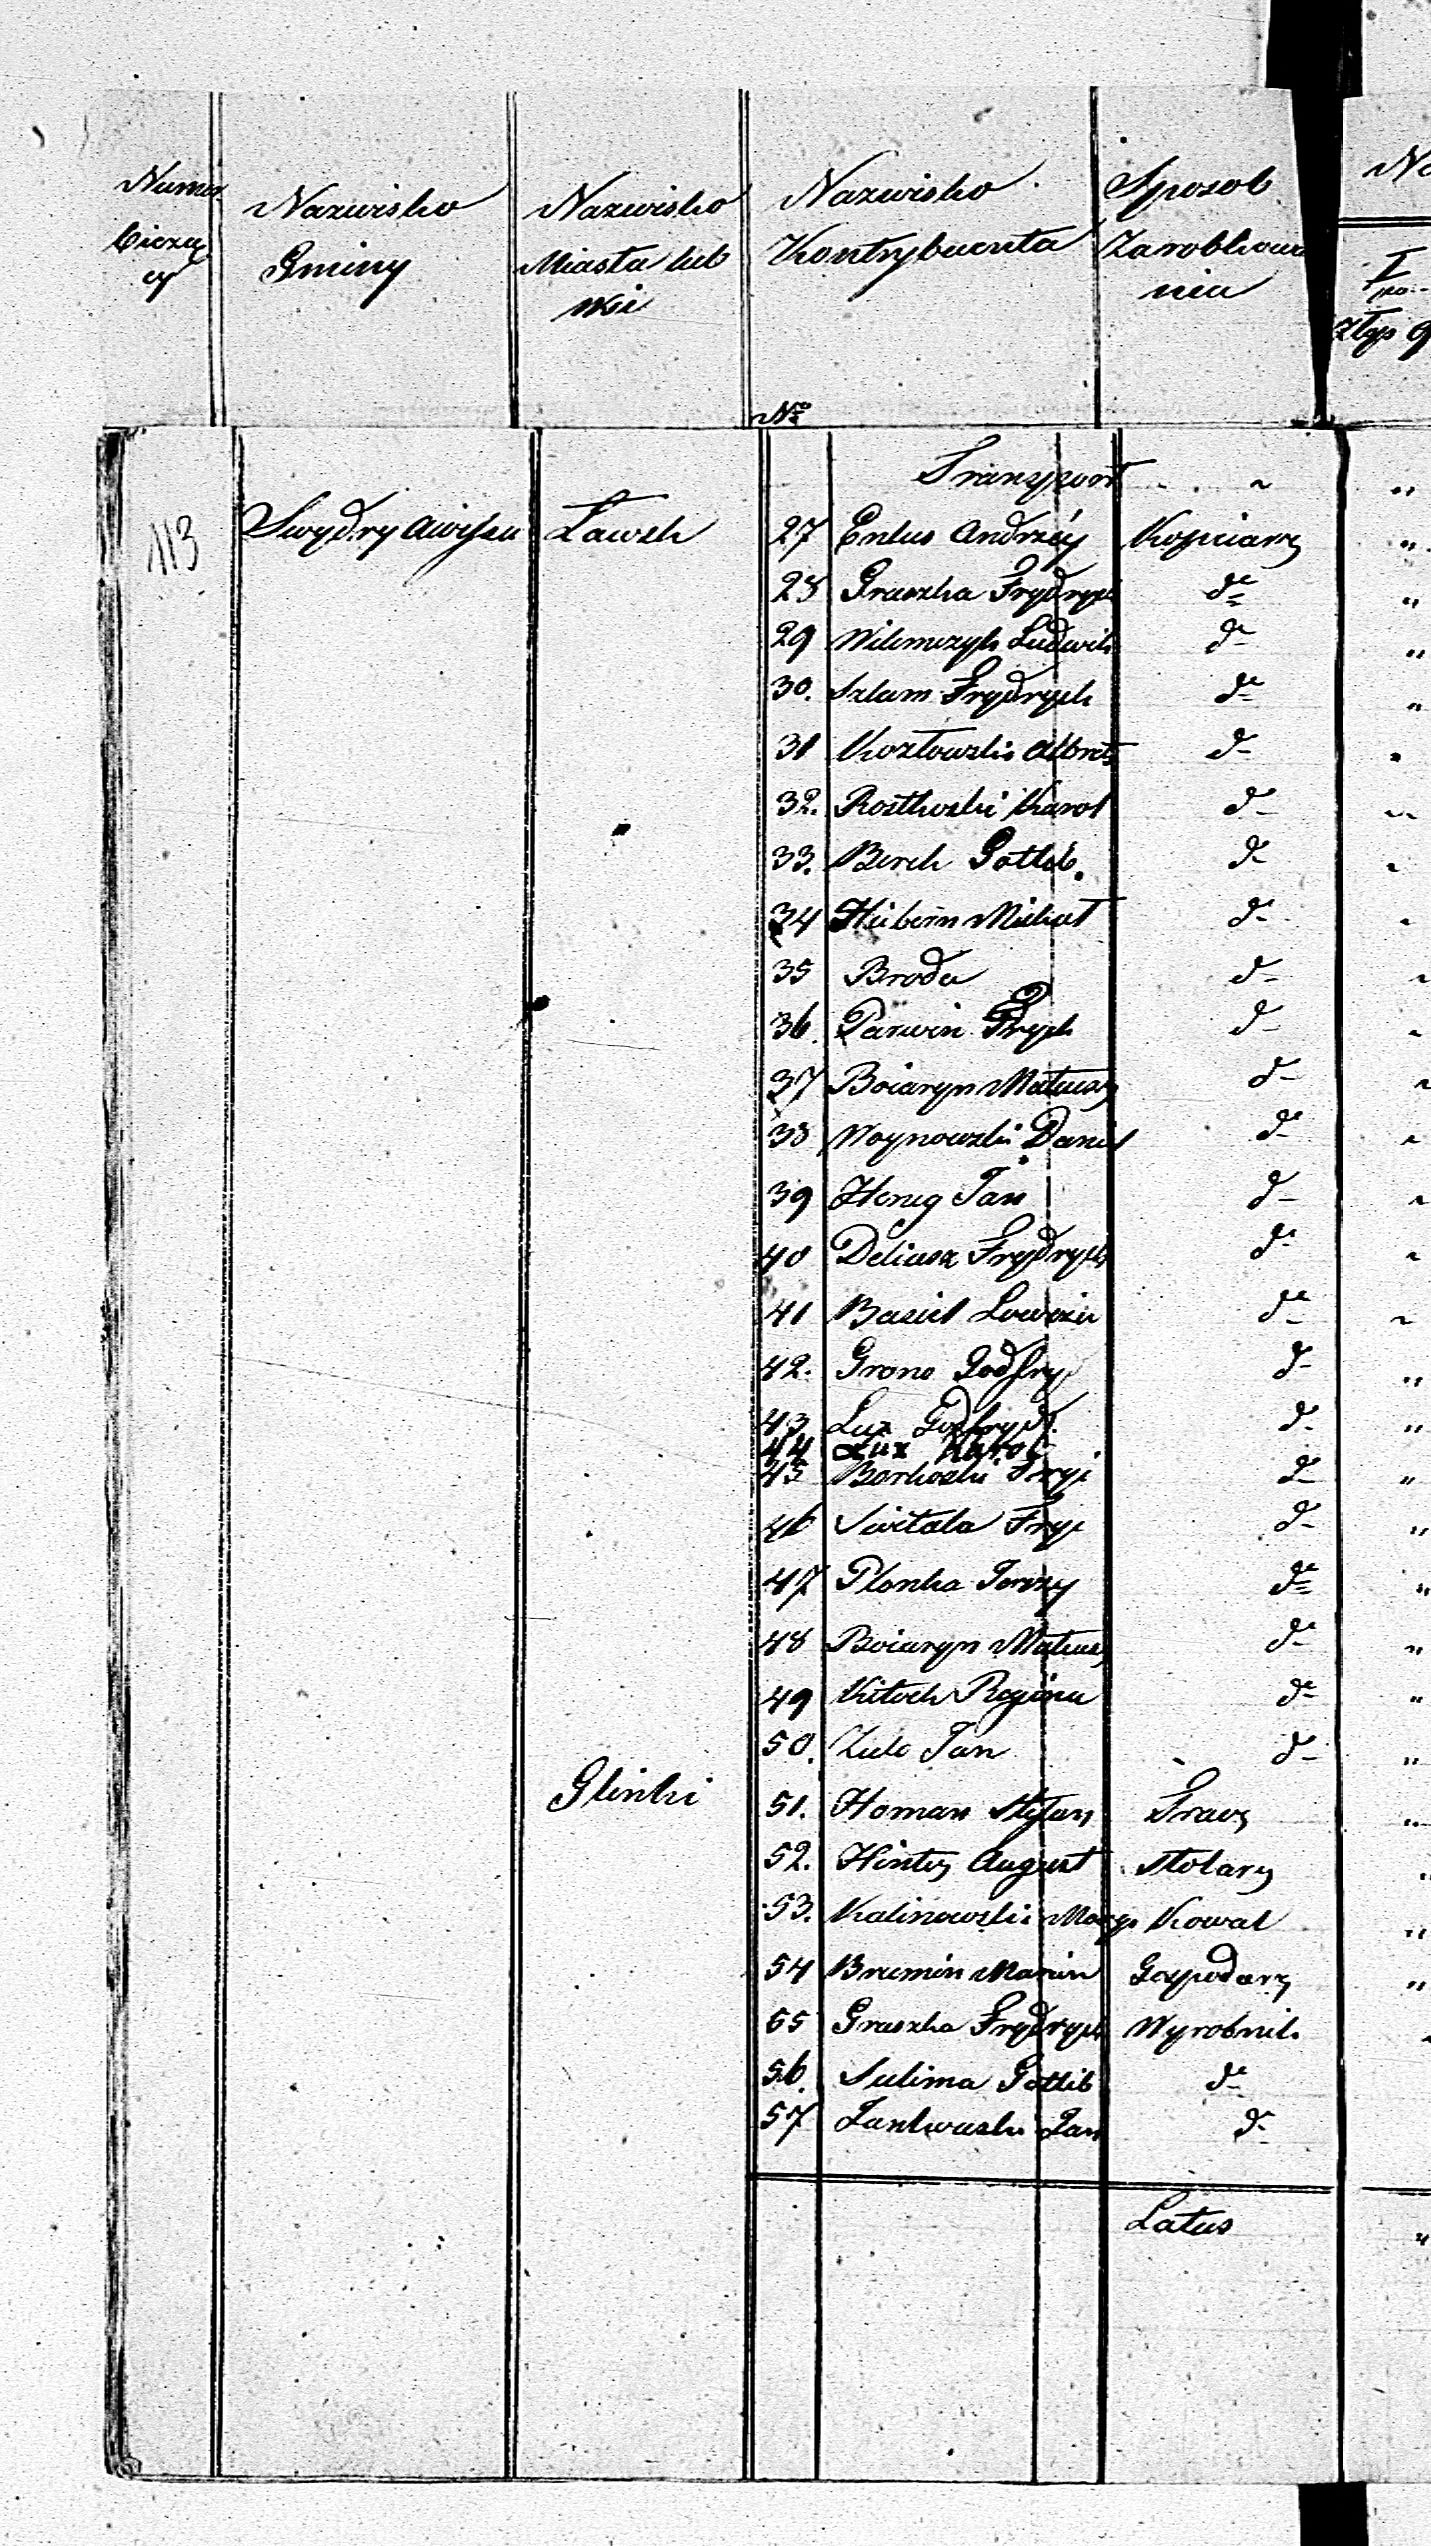 Numer
bieżący
Nazwisko
Gminy
Nazwisko
Miasta lub
Wsi
Nazwisko
Kontrybuenta
Sposob
Zarobkowa
nia
No
I
Złtp g
Nro
Transport " "
113 Swydry Lawsk 27 Andrzéy Kopiarz "
28 Graszka Frydrych do "
29 Wilemczyk Ludwik do "
30. Szlam Frydrych do "
31 Kozłowski Albret do "
32. Rostkoski Karol do "
33. Berek Gottlib. do "
34 Hübern Michał do "
35 Broda do "
36. Parwin do "
37 Boiaryn Mateusz do "
38 Woynowski Daniel do "
39 Jan do "
40 Deliasz Frydrych do "
41 Basiel do "
42. Grono Godfry do "
43 Lux Godfryd. do "
44 Lux Karol
45 Borkoski Fryi do "
46 Switala Fryi do "
47 Plonka Jerzy do "
48 Boiaryn Mateusz do "
49 Kitoch Regina do "
50. Zulo Jan do "
Glinki 51. Homan Stefan Tracz "
52. Hintz August Stolarz "
53. Kalinowski Kowal "
54 Brzemin Marcin Gospodarz "
55 Graszka Frydrych Wyrobnik "
56. Sulima Gottlib do
57 Jan do
Latus "